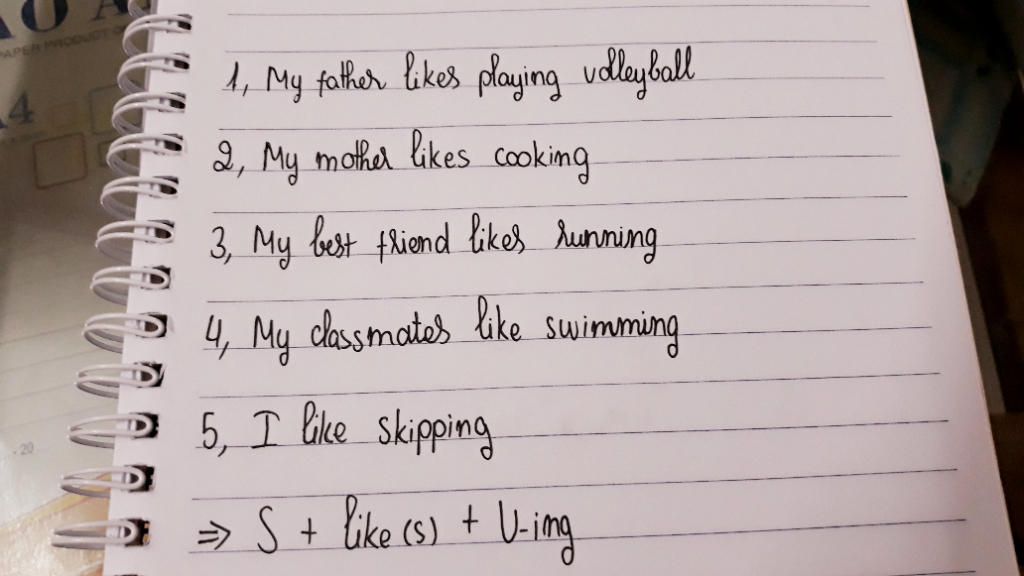 AO A
PAPER PRODUCT
A4
20
1, My father likes playing volleyball
2, My mother likes cooking
3, My best friend likes running
4, My classmates like swimming
5, I like skipping
⇒ S + like(s) + V-ing